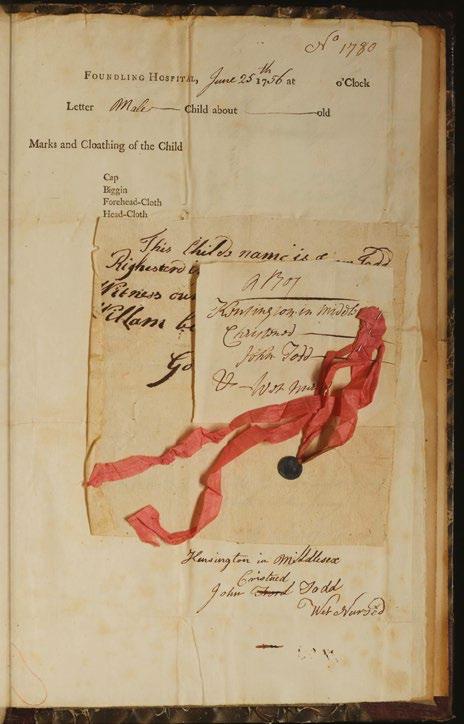 No 1780
FOUNDLING HOSPITAL, June 25th 1756 at o'Clock
Letter Male Child about old
Marks and Cloathing of the Child
Cap
Biggin
Forehead-Cloth
Head-Cloth
This Childs name is Todd
Righesterd
Witness our
Willam be
Go
A Boy
Kensington in Middle
Christned
John Todd
& Wet Nur
Kensington in Middlesex
Cristned
John Todd
Wet Nursed